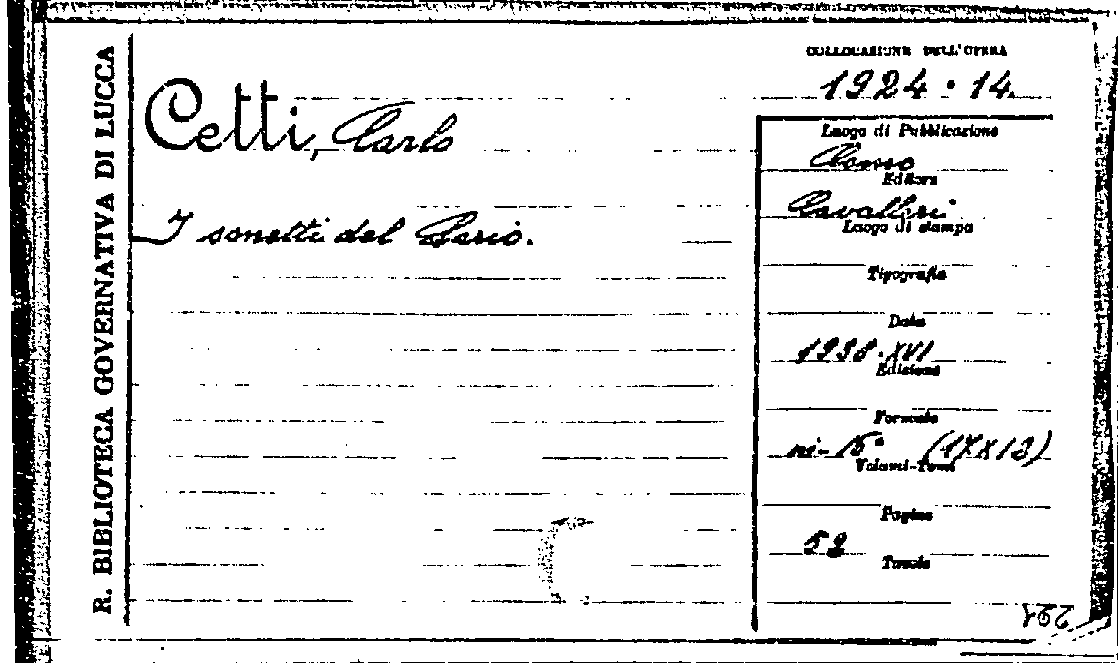 R. BIBLIOTECA GOVERNATIVA DI LUCCA
Cetti, Carlo
I sonetti del Lario.
COLLOCAZIONE DELL'OPERA
1924.14.
Luogo di Pubblicazione
Como
Editore
Cavalleri
Luogo di stampa
Tipografia
Data
1938.XVI
Edizione
Formato
in-16° (17X12)
Volumi-Tomi
Pagine
52
Tavole